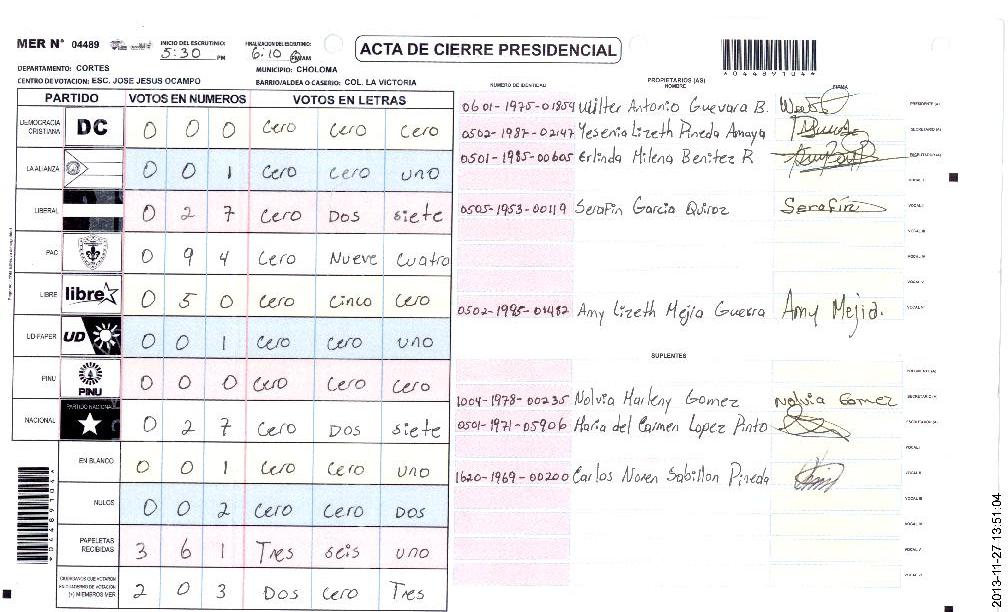 MER N° 04489
INICIO DEL ESCRUTINIO: 5:30 PM
FINALIZACION DEL ESCRUTINIO: 6:10 PM/AM
ACTA DE CIERRE PRESIDENCIAL
*04489104*
DEPARTAMENTO: CORTES
MUNICIPIO: CHOLOMA
CENTRO DE VOTACION: ESC. JOSE JESUS OCAMPO
BARRIO/ALDEA O CASERIO: COL. LA VICTORIA
PARTIDO VOTOS EN NUMEROS VOTOS EN LETRAS
DEMOCRACIA CRISTIANA DC 0 0 0 Cero Cero Cero
LA ALIANZA 0 0 1 Cero Cero uno
LIBERAL 0 2 7 Cero Dos siete
PAC 0 9 4 Cero Nueve Cuatro
LIBRE libre 0 5 0 Cero Cinco Cero
UD-FAPER UD 0 0 1 Cero Cero uno
PINU PINU 0 0 0 Cero Cero Cero
NACIONAL PARTIDO NACIONAL 0 2 7 Cero Dos siete
EN BLANCO 0 0 1 Cero Cero uno
NULOS 0 0 2 Cero Cero Dos
PAPELETAS RECIBIDAS 3 6 1 Tres seis uno
CIUDADANOS QUE VOTARON EN CUADERNO DE VOTACION (+) MIEMBROS MER 2 0 3 Dos Cero Tres
NUMERO DE IDENTIDAD
PROPIETARIOS (AS)
NOMBRE
FIRMA
0601-1975-01854 Wilter Antonio Guevara B. PRESIDENTE (A)
0502-1987-02147 Yesenia Lizeth Pineda Amaya SECRETARIO (A)
0501-1985-00605 Erlinda Milena Benitez R ESCRUTADOR (A)
VOCAL I
0505-1953-00119 Serafin Garcia Quiroz Serafin VOCAL II
VOCAL III
VOCAL IV
VOCAL V
0502-1985-01482 Amy Lizeth Mejia Guerra Amy Mejia. VOCAL VI
SUPLENTES
PRESIDENTE (A)
1004-1978-00235 Nolvia Marleny Gomez Nolvia Gomez SECRETARIO (A)
0501-1971-05906 Maria del Carmen Lopez Pinto ESCRUTADOR (A)
VOCAL I
1620-1969-00200 Carlos Noren Sabillon Pineda VOCAL II
VOCAL III
VOCAL IV
VOCAL V
VOCAL VI
*04489104*
2013-11-27 13:51:04